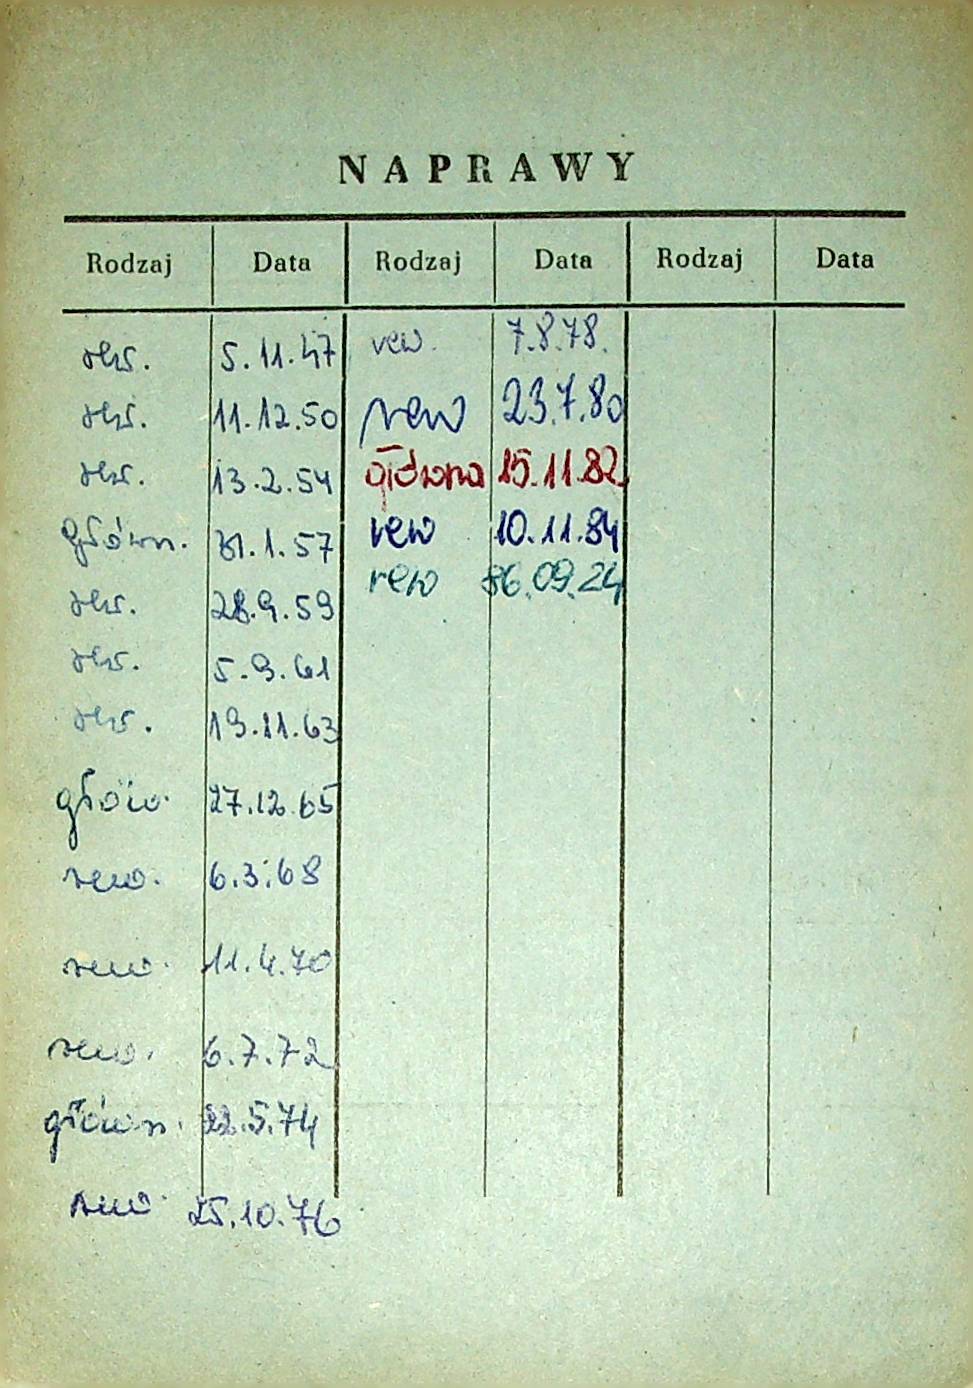 NAPRAWY
Rodzaj Data Rodzaj Data Rodzaj Data
5.11.47 rew. 7.8.78.
11.12.50 rew 23.7.80
13.2.54 główna 15.11.82
główn. 31.1.57 rew 10.11.84
28.9.59 rew 86.09.24
5.9.61
19.11.63
głów. 27.12.65
rew. 6.3.68
rew. 11.4.70
rew. 6.7.72
główn. 22.5.74
rew. 25.10.76